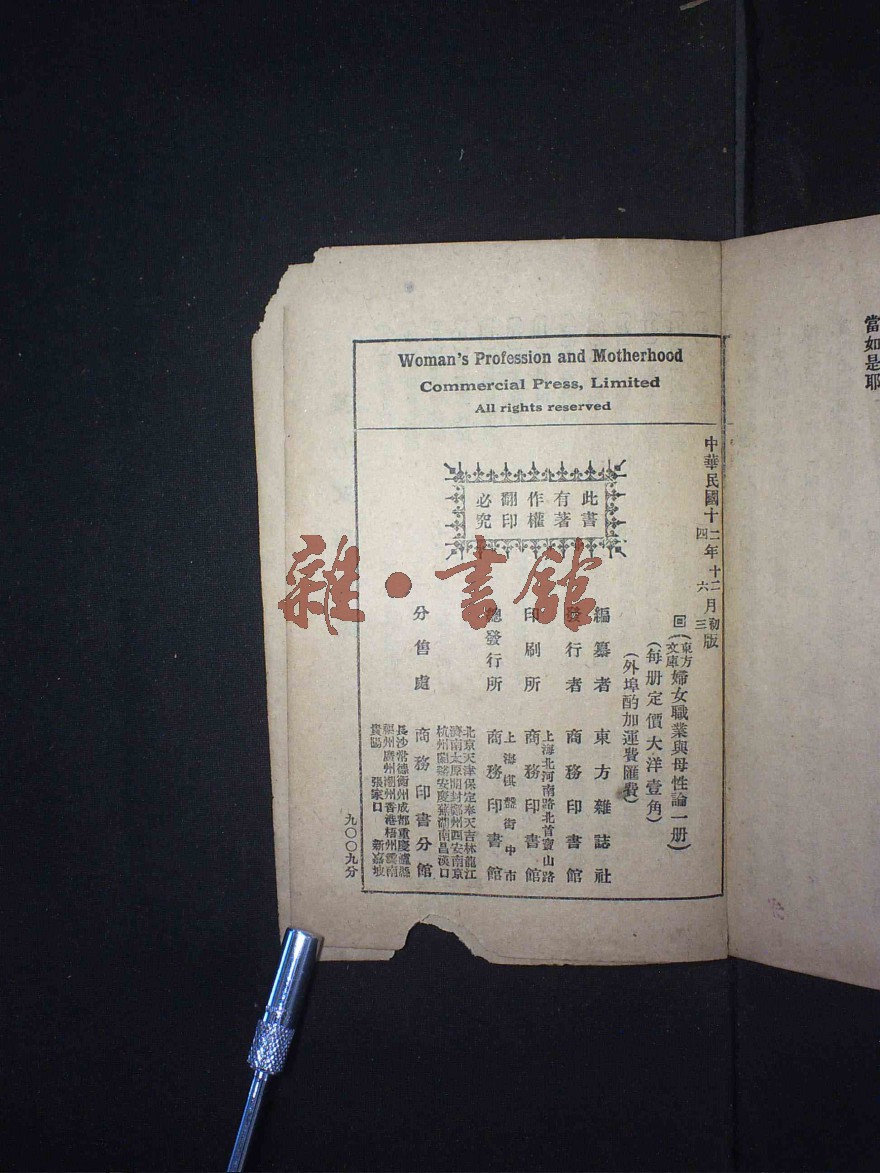 Woman's Profession and Motherhood
Commercial Press, Limited
All rights reserved
中華民國十二年十二月初版
四 六 三
回(東方文庫)婦女職業與母性論一册)
(每册定價大洋壹角)
(外埠酌加運費匯費)
此書
有著
作權
翻印
必究
編纂者 東方雜誌社
發行者 商務印書館
上海北河南路北首寶山路
印刷所 商務印書館
上海棋盤街中市
總發行所 商務印書館
北京天津保定奉天吉林龍江
濟南太原開封鄭州西安南京
杭州蘭谿安慶蕪湖南昌漢口
分售處 商務印書分館
長沙常德衡州成都重慶瀘縣
福州廣州潮州香港梧州雲南
貴陽 張家口 新嘉坡
九〇〇九分
當如是耶
雜·書館